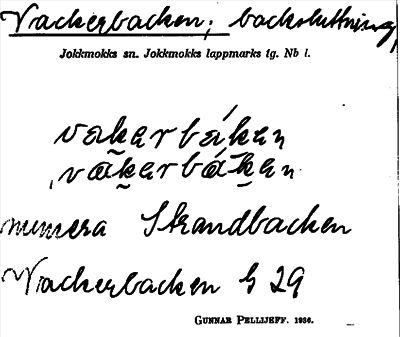 Vackerbacken; backsluttning,
Jokkmokks sn. Jokkmokks lappmarks tg. Nb l.
vak̮erbáken
ˌvak̮erbák̮en
numera Strandbacken
Vackerbacken G 29
GUNNAR PELLIJEFF. 1936.